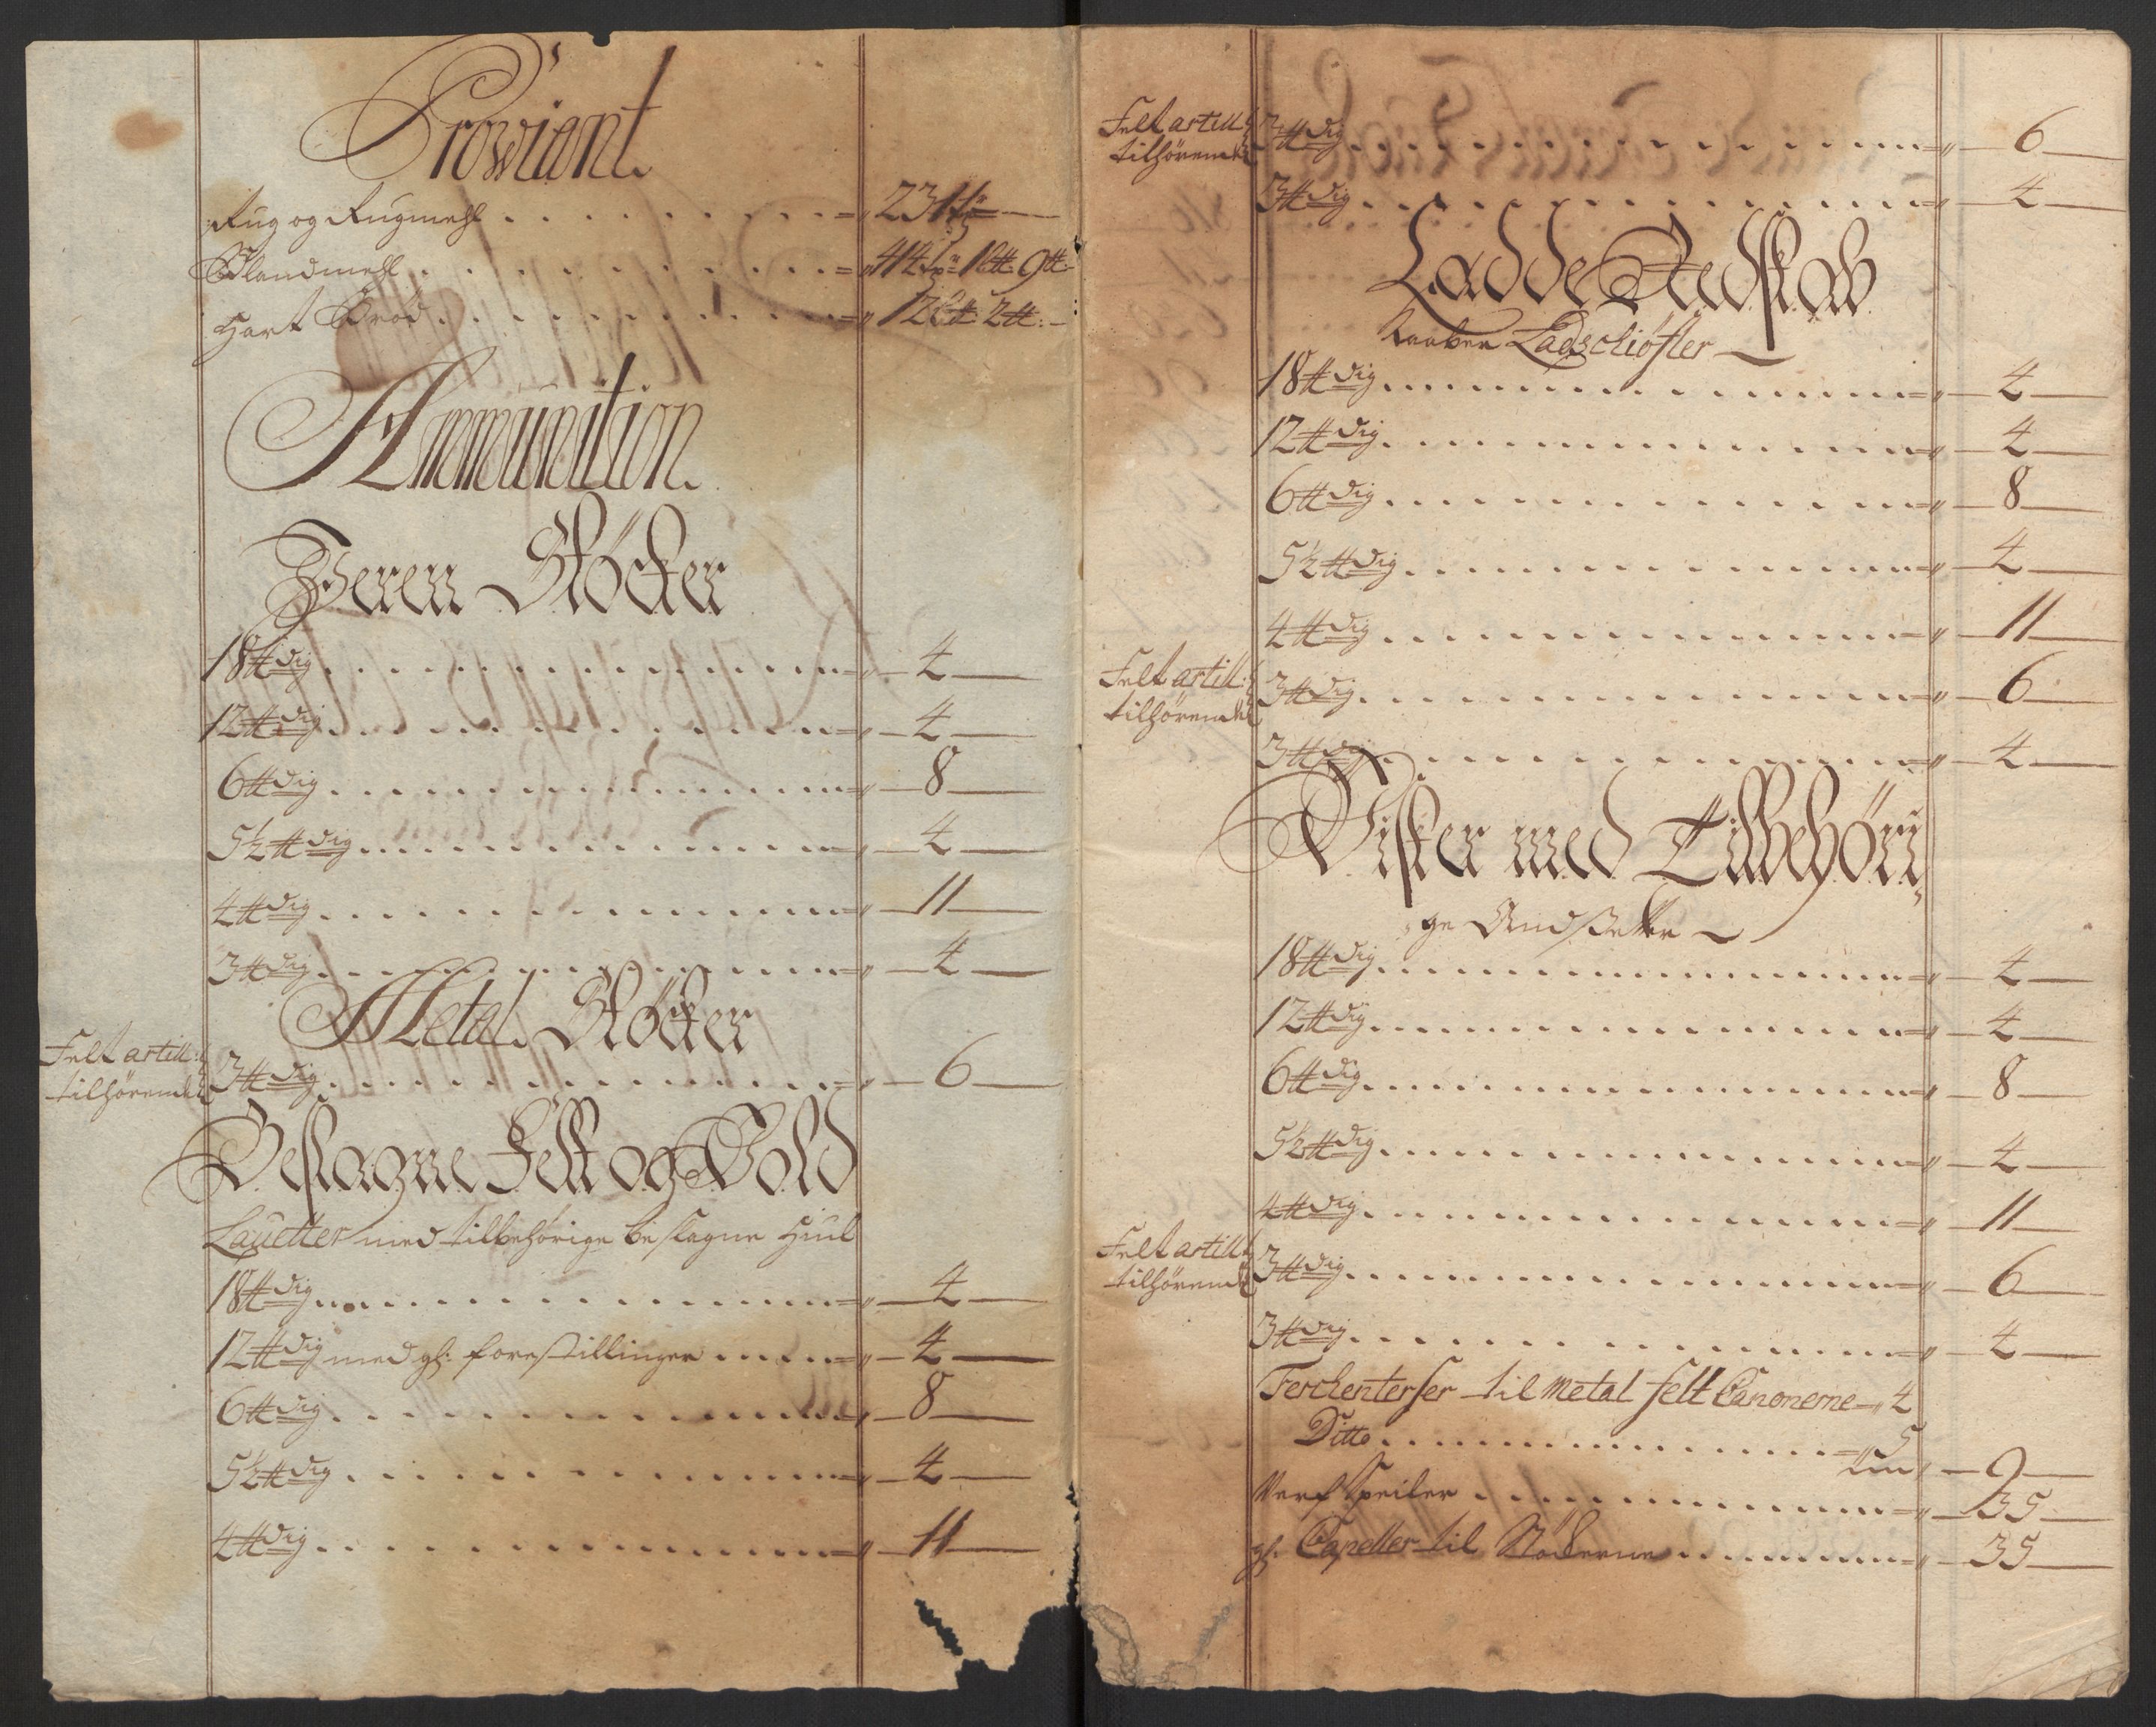 Proviant.
Rug og Rugmehl . . . . . . . . . . 231 tr —
Blandmehl . . . . . . . . . . . . 414 tr 1 L℔ 9 ℔
Hart Brød . . . . . . . . . . . . 12 L℔ 2 ℔ —
Ammunition.
Jeren Støcker
18 ℔dig . . . . . . . . . . . . 4
12 ℔dig . . . . . . . . . . . . 4
6 ℔dig . . . . . . . . . . . . 8
5½ ℔dig . . . . . . . . . . . . 4
4 ℔dig . . . . . . . . . . . . 11
3 ℔dig . . . . . . . . . . . . 4
Metal Støcker
Felt artill:
tilhørende 3 ℔dig . . . . . . . . . . 6
Beslagne Felt og Vold
Lauetter med tilbehørige beslagne Hiul
18 ℔dig . . . . . . . . . . . . 4
12 ℔dig med gl: forestillinger . . . . 4
6 ℔dig . . . . . . . . . . . . 8
5½ ℔dig . . . . . . . . . . . . 4
4 ℔dig . . . . . . . . . . . . 11
Felt artill:
tilhørende 3 ℔dig . . . . . . . . . . 6
3 ℔dig . . . . . . . . . . . . 4
Ladde Redskab
Kaaber Ladschiøfler
18 ℔dig . . . . . . . . . . . . 4
12 ℔dig . . . . . . . . . . . . 4
6 ℔dig . . . . . . . . . . . . 8
5½ ℔dig . . . . . . . . . . . . 4
4 ℔dig . . . . . . . . . . . . 11
Felt artill:
tilhørende 3 ℔dig . . . . . . . . . . 6
3 ℔dig . . . . . . . . . . . . 4
Visker med Tilbehøri
ge Andsetter
18 ℔dig . . . . . . . . . . . . 4
12 ℔dig . . . . . . . . . . . . 4
6 ℔dig . . . . . . . . . . . . 8
5½ ℔dig . . . . . . . . . . . . 4
4 ℔dig . . . . . . . . . . . . 11
Felt artill:
tilhørende 3 ℔dig . . . . . . . . . . 6
3 ℔dig . . . . . . . . . . . . 4
Ferchenterser til Metal felt Canonerne 4
Ditto . . . . . . . . . . . . 5
9
Verf Speiler . . . . . . . . . . 35
gl: Capeller til Støckerne . . . . . . 35